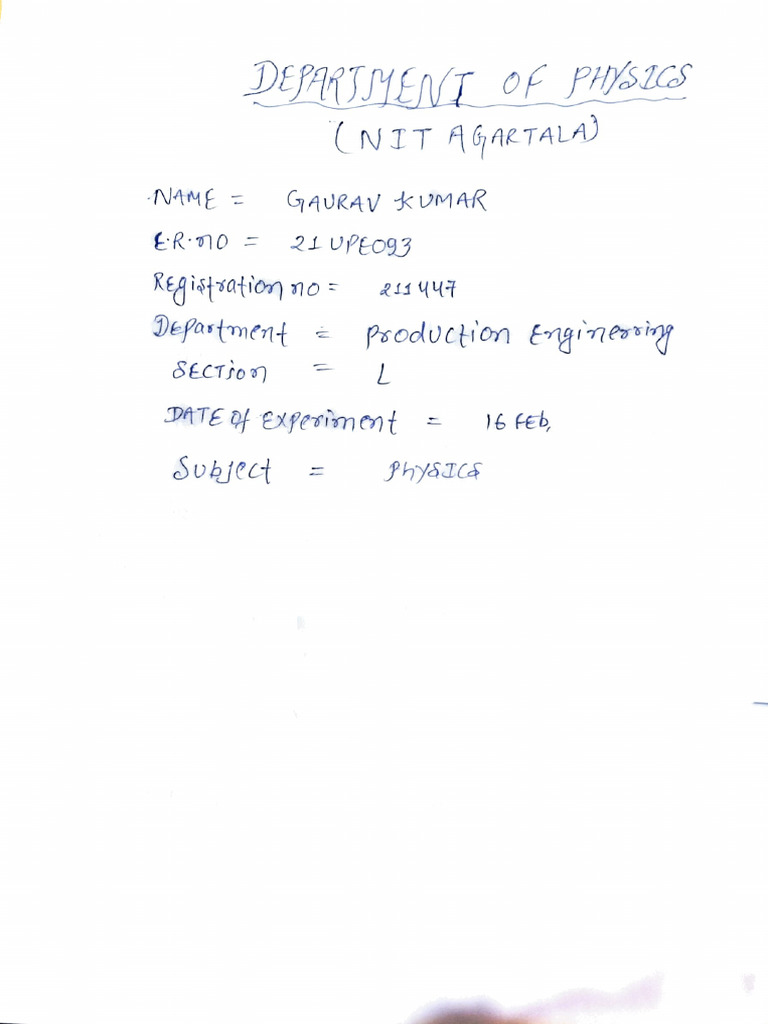 DEPARTMENT OF PHYSICS
(NIT AGARTALA)
NAME = GAURAV KUMAR
E.R.no = 21UPE093
Registration no = 211447
Department = Production Enginerring
SECTion = L
DATE Of Experiment = 16 FEb,
Subject = PhySICS